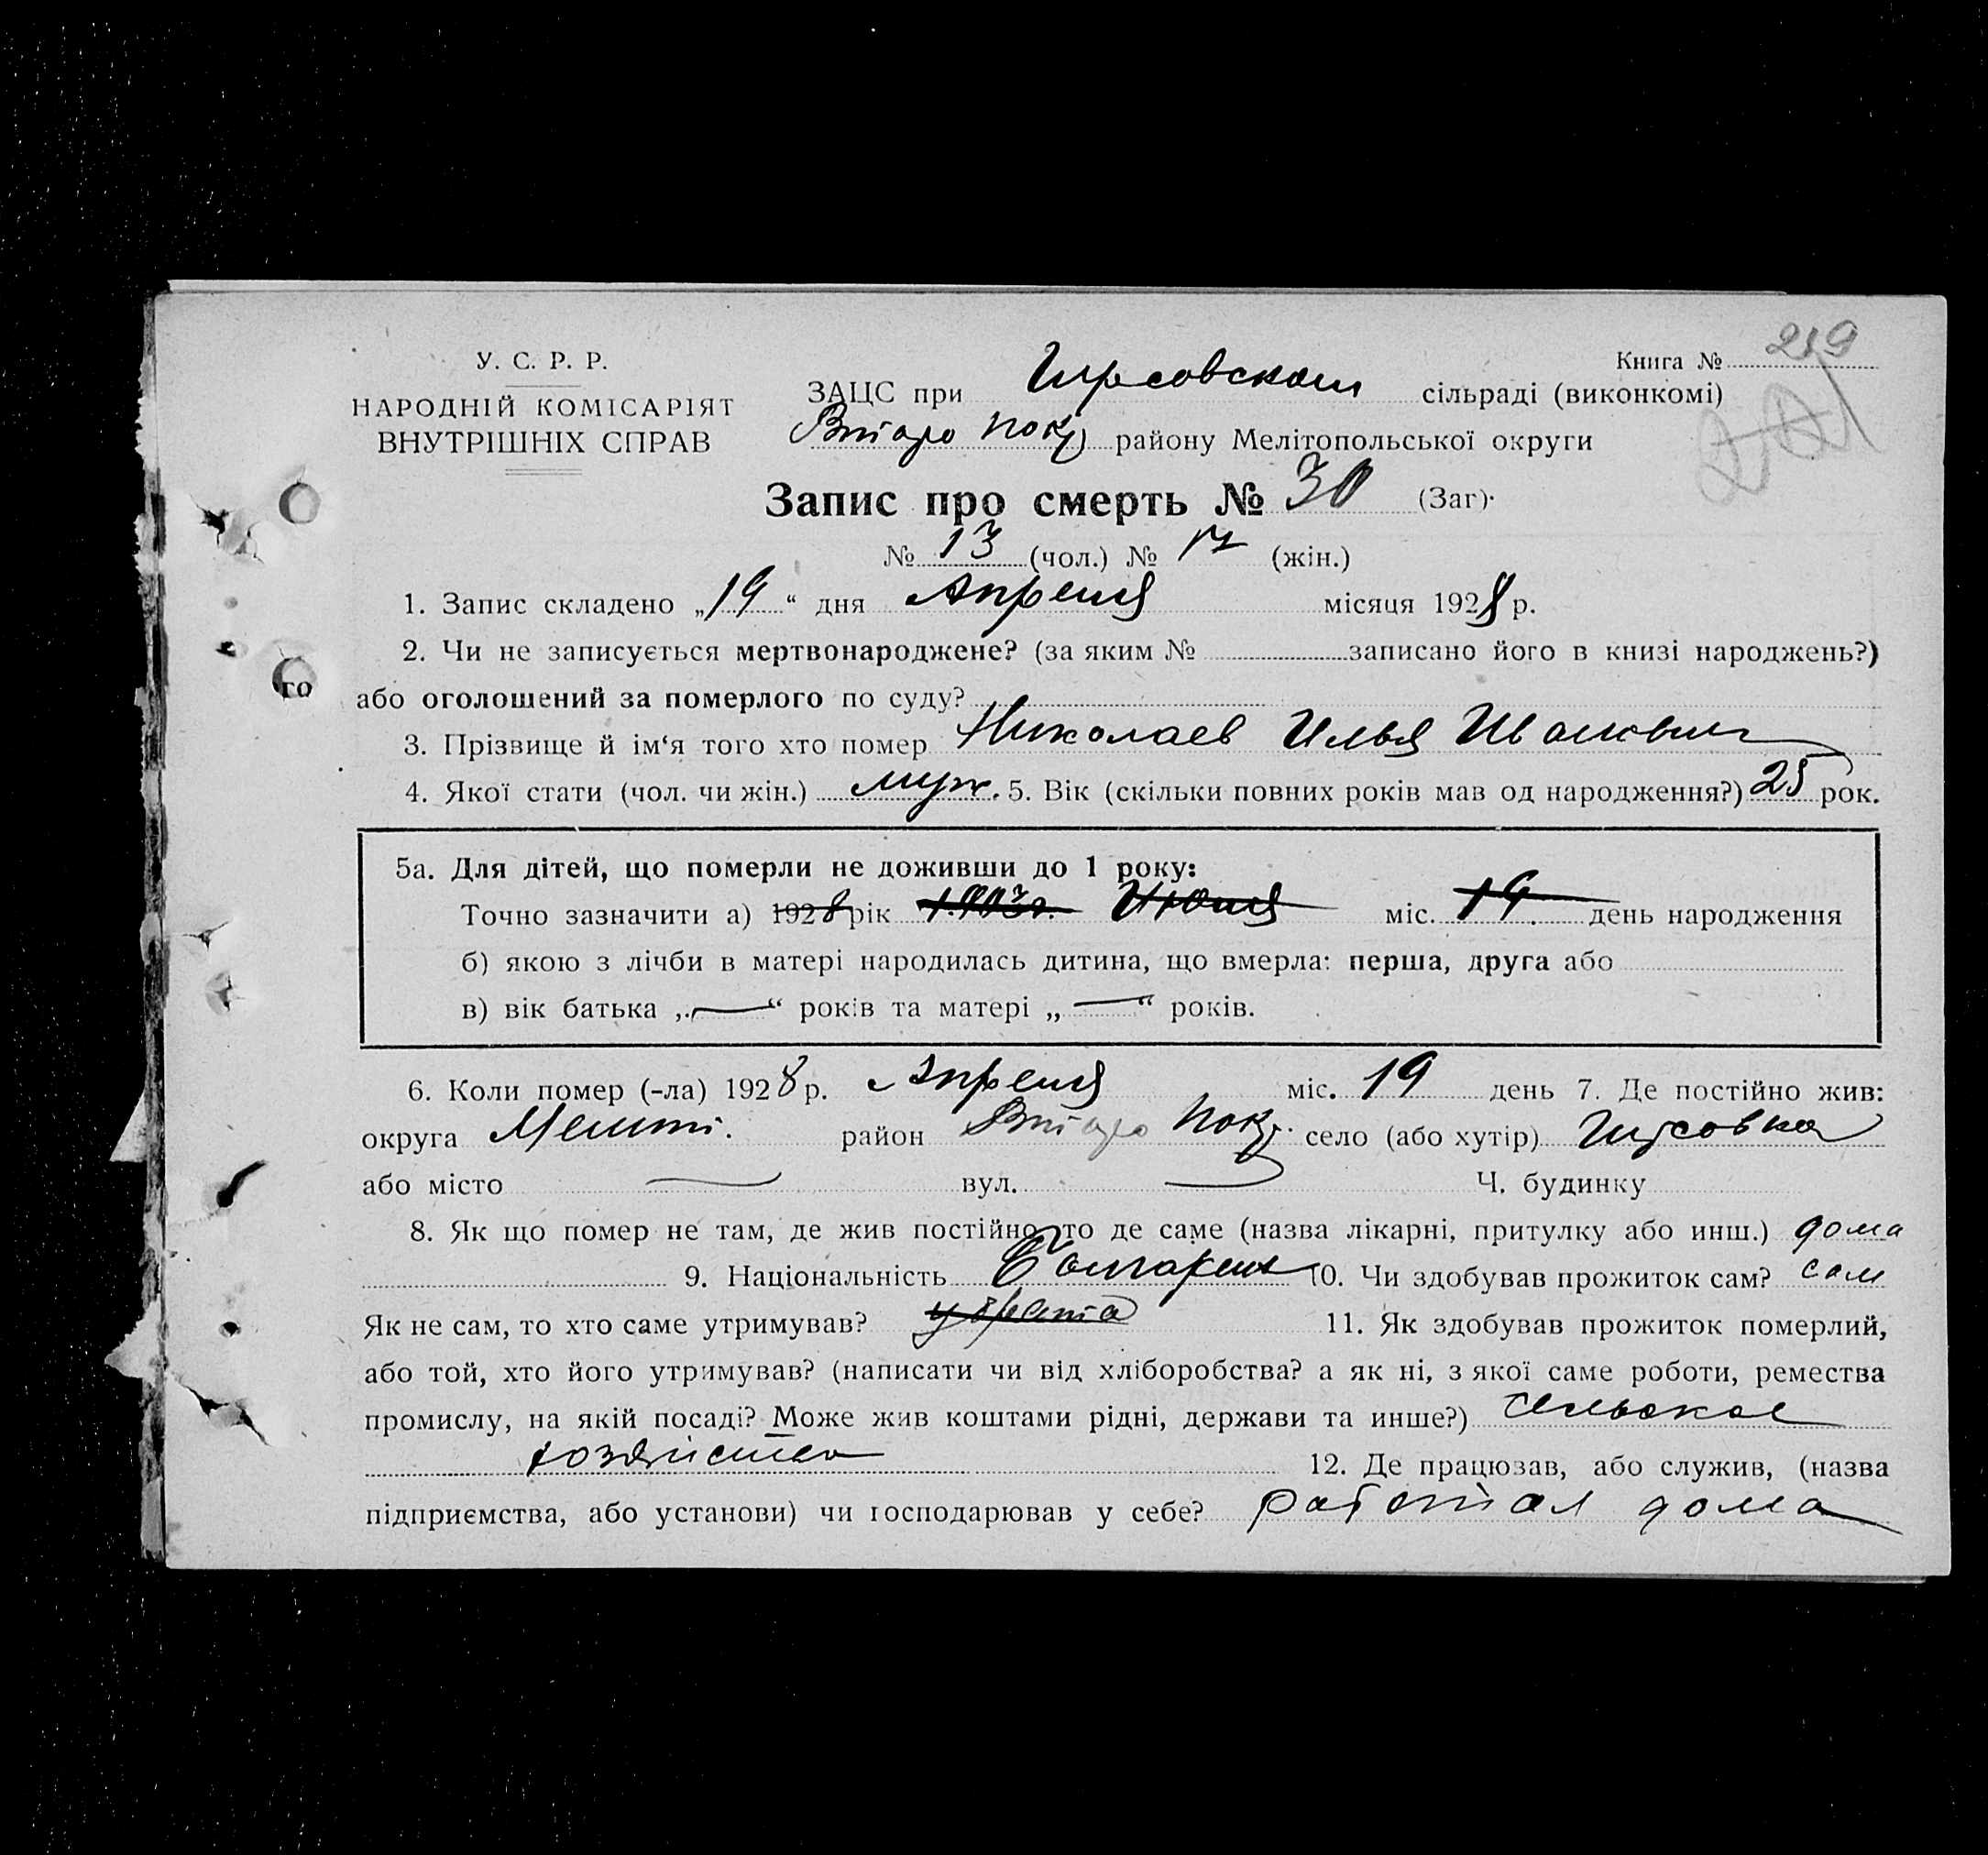 У. С. Р. Р.
НАРОДНІЙ КОМІСАРІЯТ
ВНУТРІШНІХ СПРАВ
Книга № 219
ЗАЦС при Гирсовском сільраді (виконкомі)
Втаро Покр районy Мелітопольської округи
Запис про смерть № 30 (Заг).
№ 13 (чол.) № 17 (жін.)
1. Запис складено „19“ дня Апреля місяця 1928 р.
2. Чи не записується мертвонароджене? (за яким № записано його в книзі народжень?)
го
або оголошений за померлого по суду?
3. Прізвище й ім‘я того хто помер Николаев Илья Иванович
4. Якої стати (чол. чи жін.) муж. 5. Вік (скільки повних років мав од народження?) 25 рок.
5а. Для дітей, що померли не доживши до 1 року:
Точно зазначити а) 1928 рік 1903г. Июля міс. 19. день народження
б) якою з лічби в матері народилась дитина, що вмерла: перша, друга або
в) вік батька „—“ років та матері „—“ років.
6. Коли помер (-ла) 1928 р. Апреля міс. 19 день 7. Де постійно жив:
округа Мелит. район Втаро Покр. село (або хутір) Гирсовка
або місто — вул. — Ч. будинку
8. Як що помер не там, де жив постійно, то де саме (назва лікарні, притулку або инш.) дома
9. Національність Болгарин 10. Чи здобував прожиток сам? сам
Як не сам, то хто саме утримував? 11. Як здобував прожиток померлий,
або той, хто його утримував? (написати чи від хліборобства? а як ні, з якої саме роботи, ремества
промислу, на якій посаді? Може жив коштами рідні, держави та инше?) Сельское
хозяйство 12. Де працював, або служив, (назва
підприємства, або установи) чи господарював у себе? работал дома